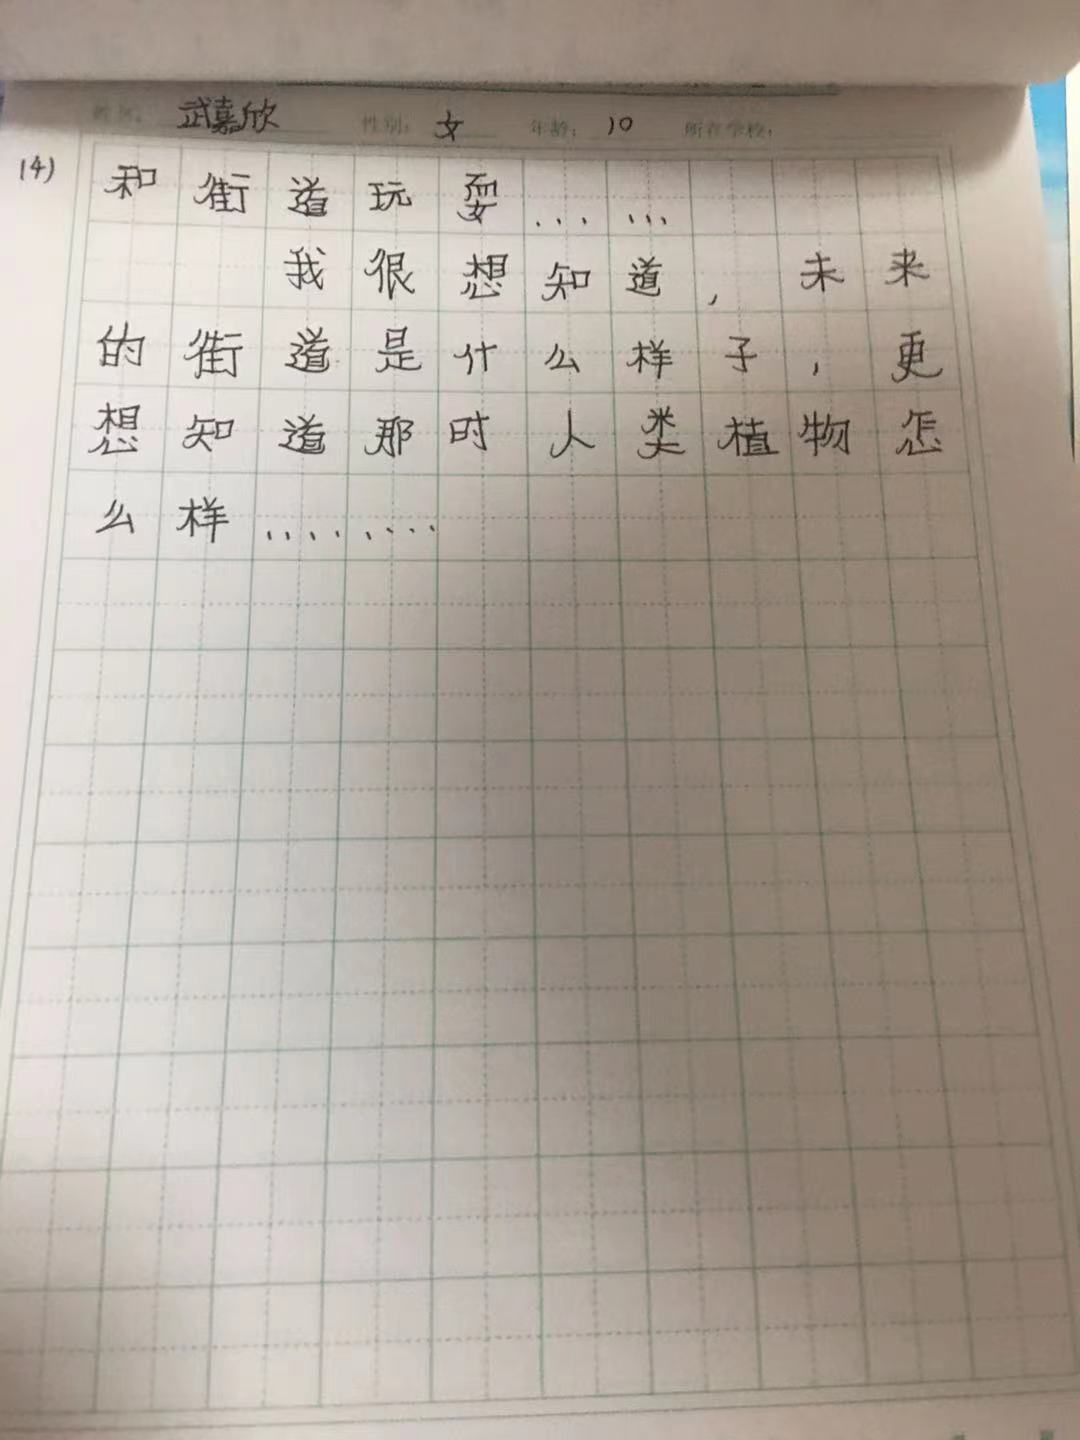 姓名: 武嘉欣 性别: 女 年龄: 10 所在学校:
14)
和街道玩耍……
我很想知道,未来
的街道是什么样子,更
想知道那时人类植物怎
么样………